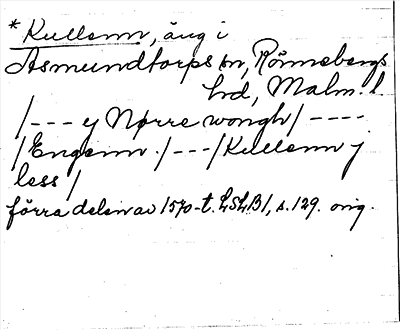 *Kullenn, äng i
Asmundtorps sn, Rönnebergs
hd, Malm. l.
/--- y Nørre wongh/ ----
/Engenn./---/Kullenn j
less/
förra delen av 1570-t. LSLB1, s. 129. orig.